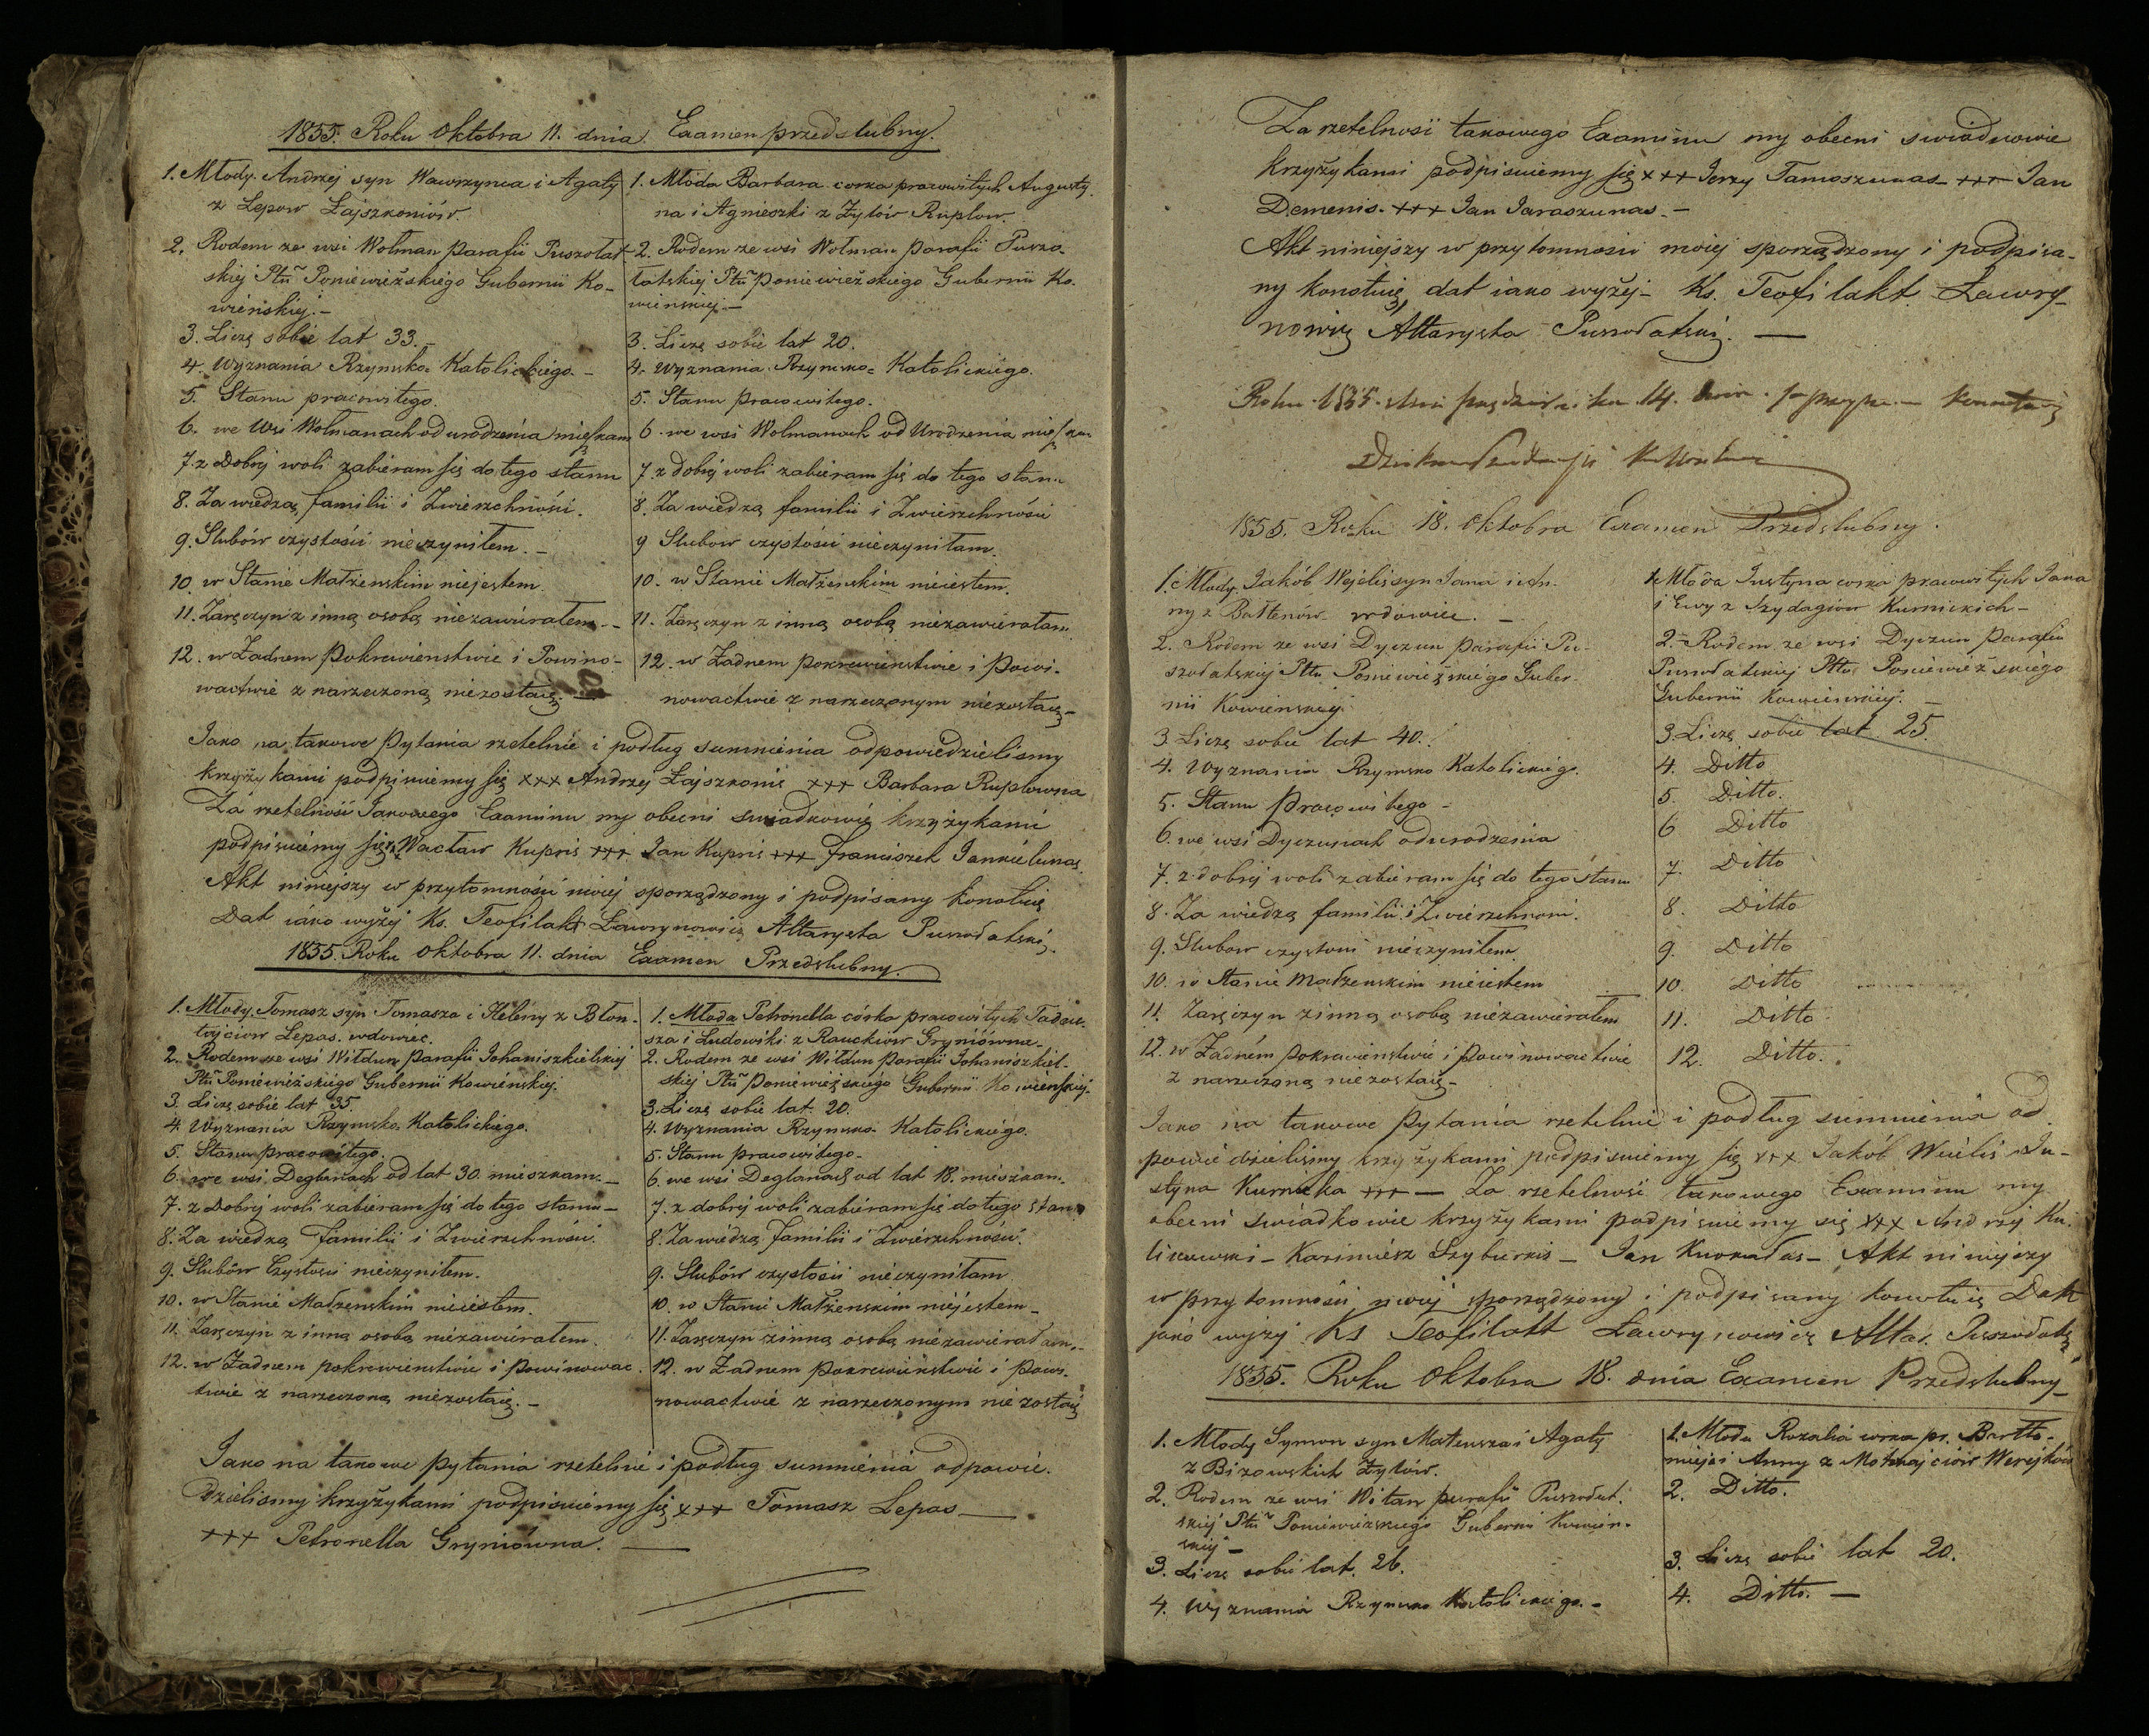 1855. Roku Oktobra 11. dnia Examen przedslubny.
1. Młody Andrzej syn Wawrzynca i Agaty
z Lepow Łajszkoniów.
2. Rodem ze wsi Wolman parafii Puszołat
skiej Ptũ Poniewieżskiego Gubernii Ko-
wieńskiej.-
3. Liczę sobie lat 33.-
4. Wyznania Rzymsko-Katolickiego.-
5. Stanu pracowitego.
6. we Wsi Wolmanach od urodzenia mięszkam
7. z Dobrej woli zabieram się do tego stanu
8. Za wiedzą familii i Zwierzchności.
9. Slubów czystości nieczyniłem.-
10. w Stanie Małżenskim niejestem
11. Zaręczyn z inną osobą niezawierałem.-
12. w Żadnem Pokrewienstwie i Powino-
wactwie z narzeczoną niezostaię.-
1. Młoda Barbara corka pracowitych Augusty-
na i Agnieszki z Żylów Ruplow.
2. Rodem ze wsi Wolman parafii Puszo-
łatskiej Ptũ Poniewieżskiego Gubernii Ko-
wieńskiej.-
3. Liczę sobie lat 20.
4. Wyznania Rzymsko-Katolickiego.
5. Stanu pracowitego.
6. we wsi Wolmanach od Urodzenia mięszkam
7. z dobrej woli zabieram się do tego stanu
8. Za wiedzą familii i Zwierzchności
9 Slubow czystości nieczyniłam.
10. w Stanie Małżenskim nieiestem.
11. Zaręczyn z inną osobą niezawierałam
12. w Żadnem pokrewienstwie i powi-
nowactwie z narzeczonym niezostaię-
Jako na takowe Pytania rzetelnie i podług sumnienia odpowiedzielismy
krzyżykami podpisuiemy się xxx Andrzej Łajszkonis xxx Barbara Ruplowna
Za rzetelność Takowego Examinu my obecni swiadkowie krzyżykami
podpisuiemy się xxx Wacław Kupris xxx Jan Kupris xxx Franciszek Jankielunas.
Akt niniejszy w przytomności moiej sporządzony i podpisany konotuię
Dat iako wyżej Ks. Teofilakt Ławrynowicz Altarysta Puszołatski.
1855. Roku Oktobra 11. dnia Examen Przedslubny.
1. Młody Tomasz syn Tomasza i Heleny z Błon-
Lepas. wdowiec.
2. Rodem ze wsi Wiłdun parafii Johaniszkielskiej
Ptũ Poniewieżskiego Gubernii Kowieńskiej.
3. Liczę sobie lat 35.
4. Wyznania Rzymsko-Katolickiego.
5. Stanu pracowitego.
6. we wsi Deglanach od lat 30. mieszkam.-
7. z Dobrej woli zabieram się do tego stanu-
8. Za wiedzą Familii i Zwierzchności.
9. Slubów Czystosci nieczyniłem.
10. w Stanie Małzenskim nieiestem.
11. Zaręczyn z inną osobą niezawierałem.
12. w Żadnem pokrewienstwie i Powinowac-
twie z narzeczoną niezostaię.-
1. Młoda Petronella córka pracowitych Tadeu-
sza i Ludowiki z Rauckiow Gryniówna.
2. Rodem ze wsi Wiłdun parafii Johaniszkiel-
skiej Ptũ Poniewieżskiego Gubernii Kowieńskiej.
3. Liczę sobie lat 20.
4. Wyznania Rzymsko-Katolickiego.
5. Stanu pracowitego-
6. we wsi Deglanach od lat 18. mieszkam.
7. z dobrej woli zabieram się do tego stanu
8. Za wiedzą Familii i Zwierzchności.
9. Slubów czystości nieczyniłam
10. w Stanie Małżenskim niejestem-
11. Zaręczyn z inną osobą niezawierałam.-
12. w Żadnem pokrewienstwie i powi-
nowactwie z narzeczonym niezostaię
Jako na takowe Pytania rzetelnie i podług sumnienia odpowie-
dzielismy krzyżykami podpisuiemy się xxx Tomasz Lepas-
xxx Petronella Gryniówna.-
Za rzetelność takowego Examinu my obecni swiadkowie
krzyżykami podpisuiemy się xxx Jerzy Tamoszunas- xxx Jan
Demenis- xxx Jan Jaraszunas.-
Akt niniejszy w przytomności moiej sporządzony i podpisa-
ny konotuię, dat iako wyżej- Ks. Teofilakt Ławry-
nowicz Altarysta Puszołatski.-
Roku 1855 października 14. dnia
1855. Roku 18. Oktobra Examen Przedslubny.
1. Młody Jakób Wejelis syn Jana i An-
ny z Bałtenów wdowiec.-
2. Rodem ze wsi Dyczun parafii Pu-
szołatskiej Ptu Poniewieżskiego Guber-
nii Kowienskiej.
3. Liczę sobie lat 40.
4. Wyznania Rzymsko Katolickiego.
5. Stanu Pracowitego-
6. we wsi Dyczunach od urodzenia
7. z dobrej woli zabieram się do tego stanu
8. Za wiedzą familii i Zwierzchnosci.
9. Slubow czystosci nieczyniłem
10. w Stanie Małzenskim nieiestem
11. Zaręczyn z inną osobą niezawierałem
12. w Żadném pokrewienstwie i powinowactwie
z narzeczoną niezostaię-
1. Młoda Justyna corka pracowitych Jana
i Ewy z Szydagiow Kurnickich-
2.- Rodem ze wsi Dyczun parafii
Puszołatskiej Ptu Poniewieżskiego
Gubernii Kowieńskiej.-
3. Liczę sobie lat 25.
4. Ditto
5. Ditto.
6 Ditto
7. Ditto
8. Ditto
9. Ditto
10. Ditto
11. Ditto
12. Ditto.
Jako na takowe Pytania rzetelnie i podług sumnienia od-
powiedzielismy krzyżykami podpisuiemy się xxx Jakób Weielis Ju-
styna Kurnicka xxx- Za rzetelność takowego Examinu my
obecni swiadkowie krzyżykami podpisuiemy się xxx Andrzej Ku-
liszewski- Kazimierz Szyburkis- Jan - Akt niniejszy
w przytomności moiej sporządzony i podpisany konotuię Dat
jako wyżej Ks Teofilakt Ławrynowicz Altar. Puszołatski
1855. Roku Oktobra 18. dnia Examen Przedslubny-
1. Młody Symon syn Mateusza i Agaty
z Bizowskich Żylów.
2. Rodem ze wsi Witan parafii Puszołat-
skiej Ptũ Poniewieżskiego Gubernii Kowień-
skiej-
3. Liczę sobie lat. 26.
4. Wyznania Rzymsko Katolickiego.-
1. Młoda Rozalia corka pr. Bartło-
mieja i Anny z Werejków
2. Ditto.
3. Liczę sobie lat 20.
4. Ditto.-